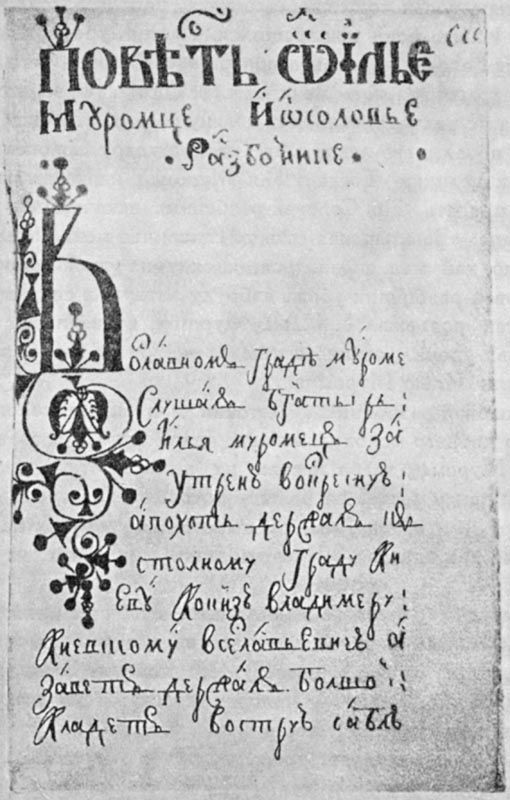 Повѣсть ѿ Ильѣ
Муромце И ѡ соловье
Разбоинице
В славномъ градѣ муроме
Слушалъ багатырь
Илья муромецъ за
утренѣ воскресную
а походъ держалъ къ
столному граду Ки
еву Ко князю владимеру
Киевскому всеславьевичю а
Заветъ держалъ болшо
Кладетъ вострую саблю